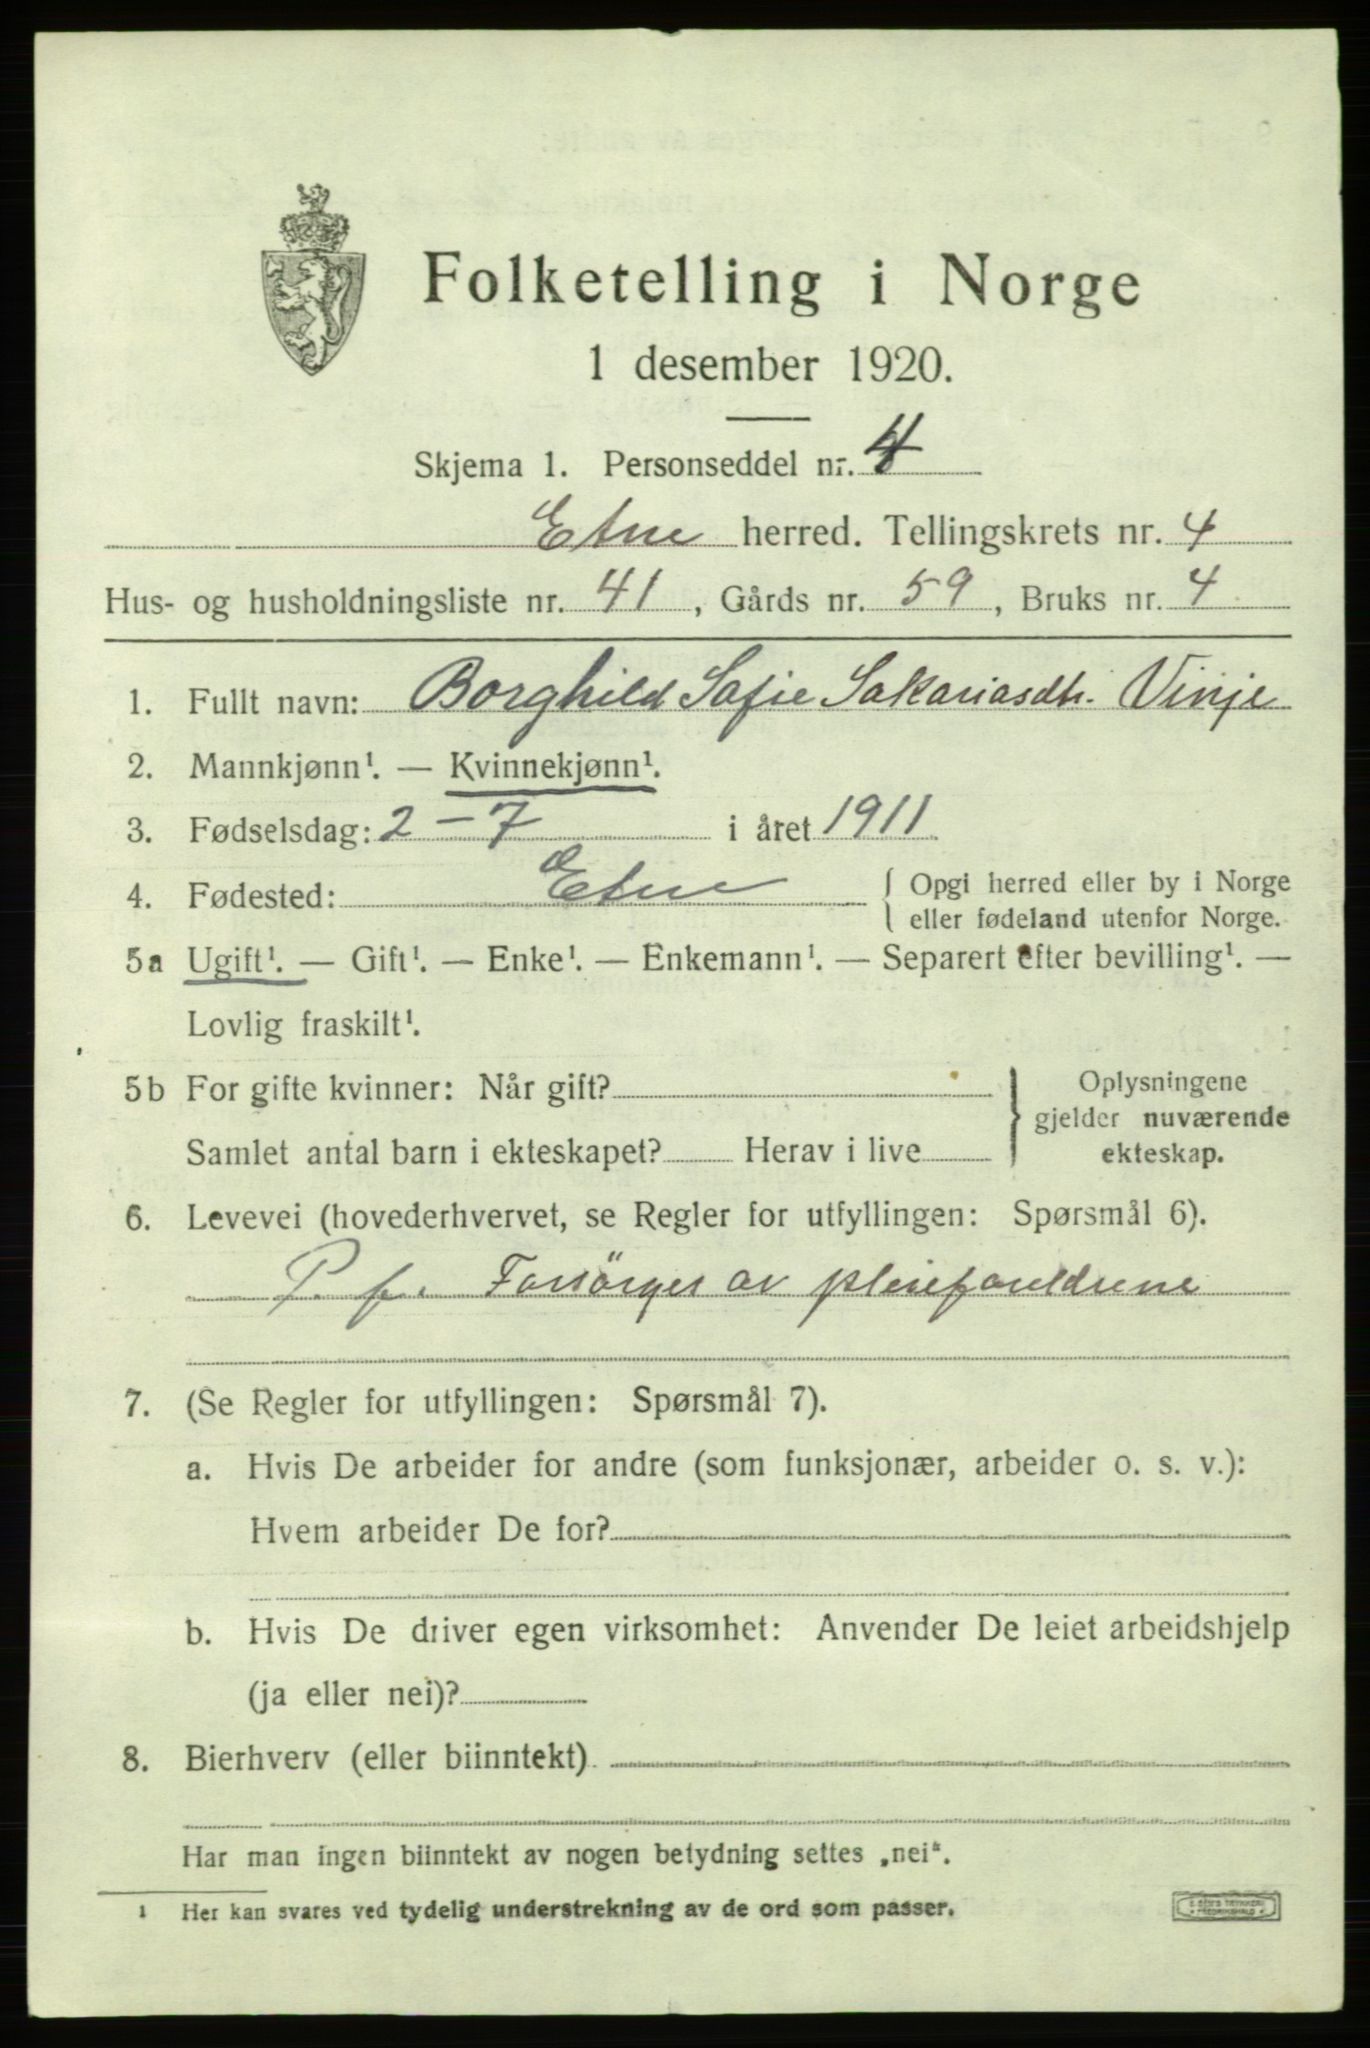 Folketelling i Norge
1 desember 1920.
Skjema 1. Personseddel nr. 4
Etne herred. Tellingskrets nr. 4
Hus- og husholdningsliste nr. 41, Gårds nr. 59, Bruks nr. 4
1. Fullt navn: Borghild Sofie Sakariasdtr. Vinje
2. Mannkjønn¹. — Kvinnekjønn¹.
3. Fødselsdag: 2 - 7 i året 1911
4. Fødested: Etne { Opgi herred eller by i Norge
eller fødeland utenfor Norge.
5a Ugift¹. — Gift¹. — Enke¹. — Enkemann¹. — Separert efter bevilling¹. —
Lovlig fraskilt¹.
5b For gifte kvinner: Når gift?
Samlet antal barn i ekteskapet? Herav i live
} Oplysningene
gjelder nuværende
ekteskap.
6. Levevei (hovederhvervet, se Regler for utfyllingen: Spørsmål 6).
P. f. Forsörges av pleieforeldrene
7. (Se Regler for utfyllingen: Spørsmål 7).
a. Hvis De arbeider for andre (som funksjonær, arbeider o. s. v.):
Hvem arbeider De for?
b. Hvis De driver egen virksomhet: Anvender De leiet arbeidshjelp
(ja eller nei)?
8. Bierhverv (eller biinntekt)
Har man ingen biinntekt av nogen betydning settes „nei“.
¹ Her kan svares ved tydelig understrekning av de ord som passer.